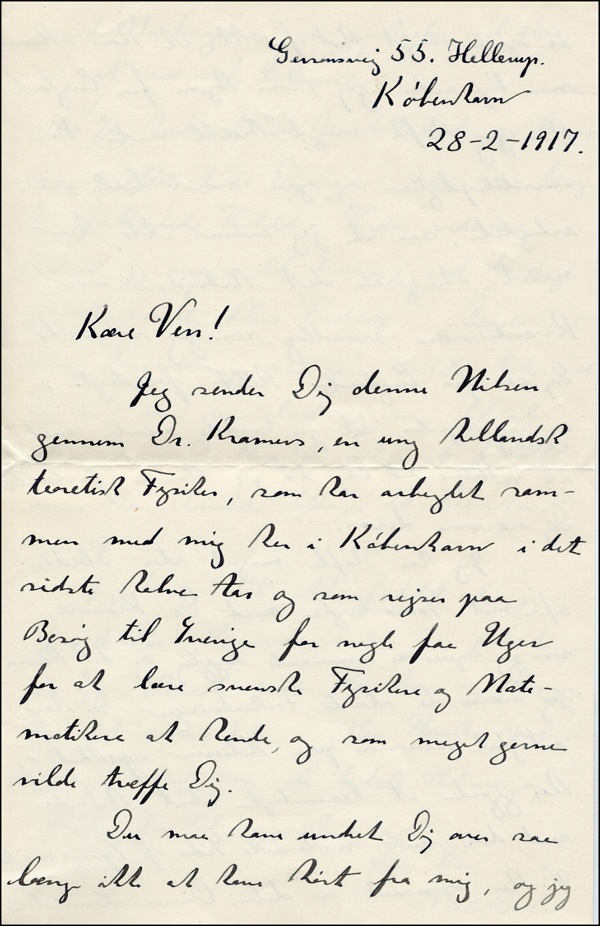 Gersonsvej 55. Hellerup.
København
28-2-1917.
Kære Ven!
Jeg sender Dig denne Hilsen
gennem Dr. Kramers, en ung hollandsk
teoretisk Fysiker, som har arbejdet sam-
men med mig her i København i det
sidste halve Aar og som rejser paa
Besøg til Sverige for nogle faa Uger
for at lære svenske Fysikere og Mate-
matikere at kende, og som meget gerne
vilde træffe Dig.
Du maa have undret Dig over saa
længe ikke at have hørt fra mig, og jeg